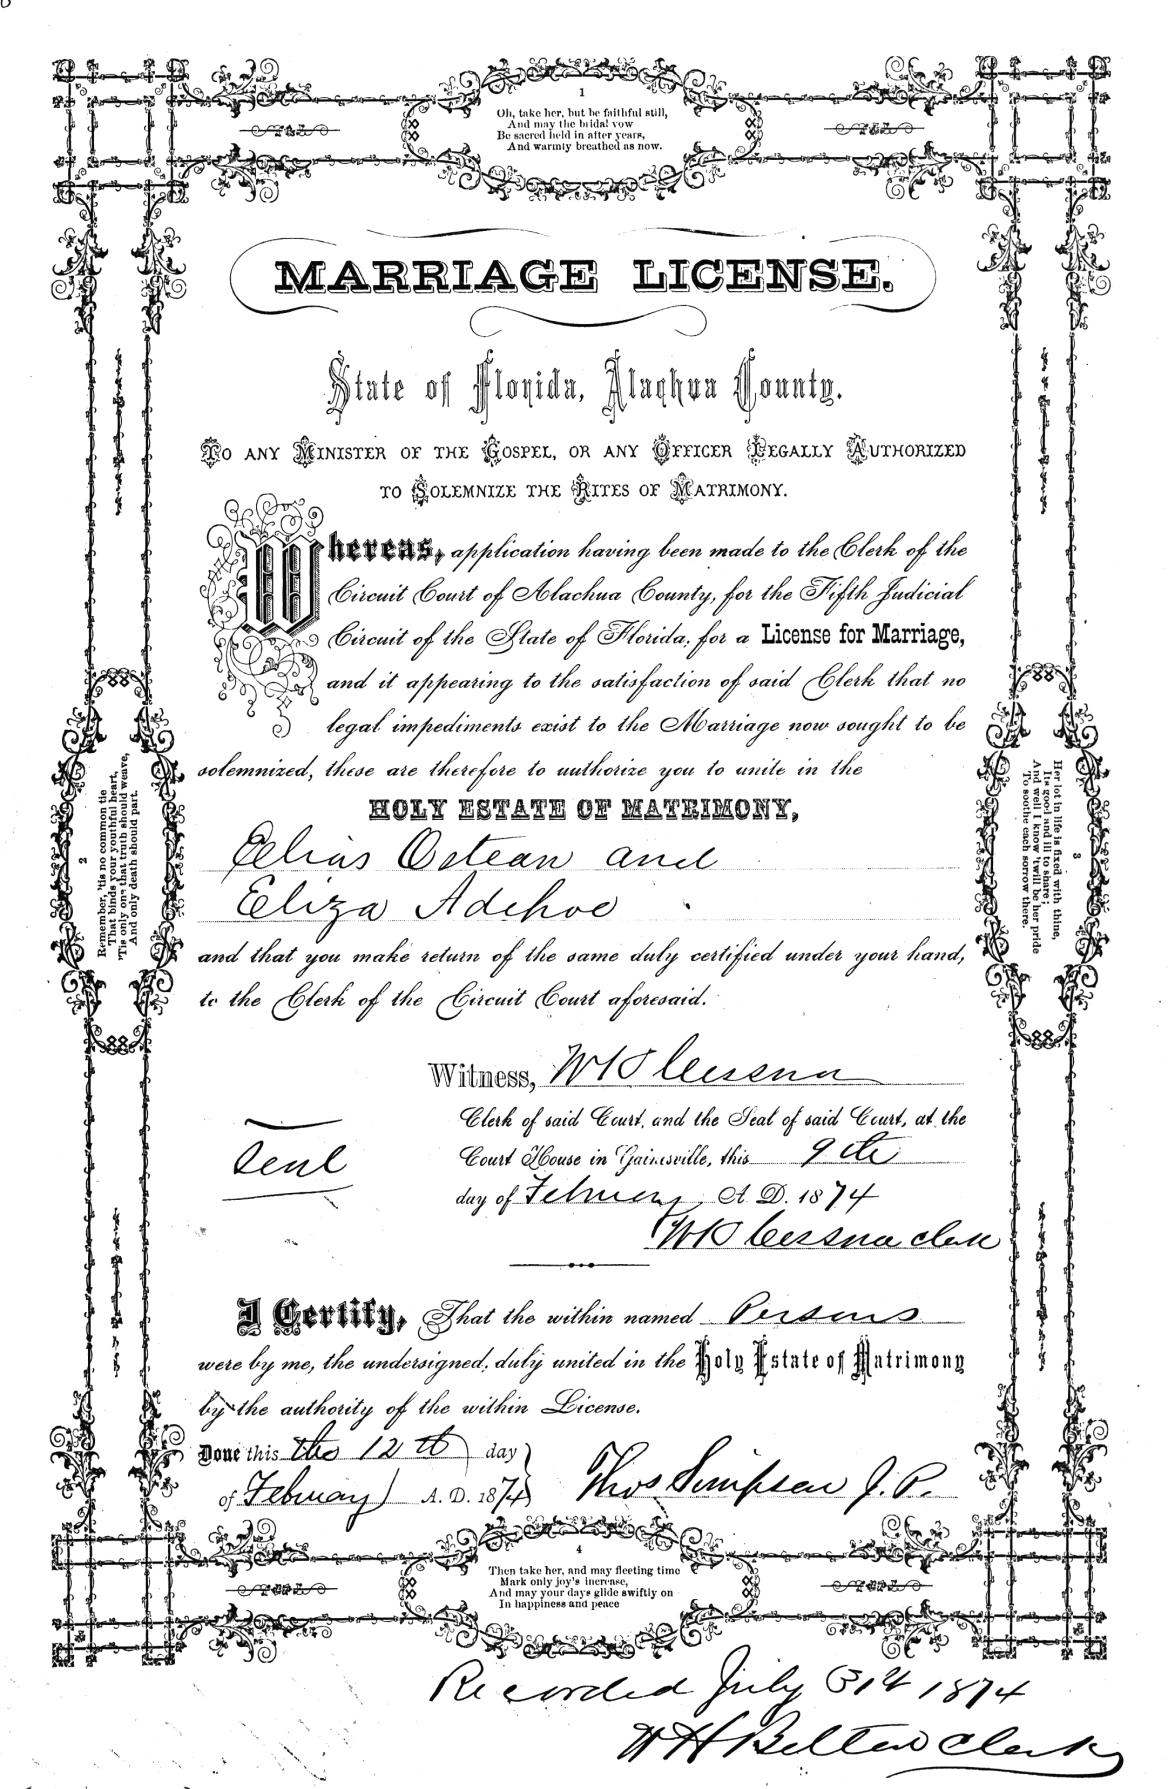 1
Oh, take her, but be faithful still,
And may the bridal vow
Be sacred held in after years,
And warmly breathed as now.
MARRIAGE LICENSE.
State of Florida, Alachua County.
TO ANY MINISTER OF THE GOSPEL, OR ANY OFFICER LEGALLY AUTHORIZED
TO SOLEMNIZE THE RITES OF MATRIMONY.
Whereas, application having been made to the Clerk of the
Circuit Court of Alachua County, for the Fifth Judicial
Circuit of the State of Florida, for a License for Marriage,
and it appearing to the satisfaction of said Clerk that no
legal impediments exist to the Marriage now sought to be
solemnized, these are therefore to authorize you to unite in the
HOLY ESTATE OF MATRIMONY,
Elias Ostean and
Eliza Adehoe
and that you make return of the same duly certified under your hand,
to the Clerk of the Circuit Court aforesaid.
Witness, Cessna
Clerk of said Court, and the Seal of said Court, at the
Seal
Court House in Gainesville, this 9th
day of February A. D. 1874
Cessna Clerk
I Certify, That the within named Persons
were by me, the undersigned, duly united in the Holy Estate of Matrimony
by the authority of the within License.
Done this the 12th day
of February A. D. 1874
Thos Simpson J. P.
2
Remember, 'tis no common tie
That binds your youthful heart,
'Tis only one that truth should weave,
And only death should part.
3
Her lot in life is fixed with thine,
Its good and ill to share;
And well I know 'twill be her pride
To soothe each sorrow there.
4
Then take her, and may fleeting time
Mark only joy's increase,
And may your days glide swiftly on
In happiness and peace
Recorded July 31st 1874
W H Belton Clerk